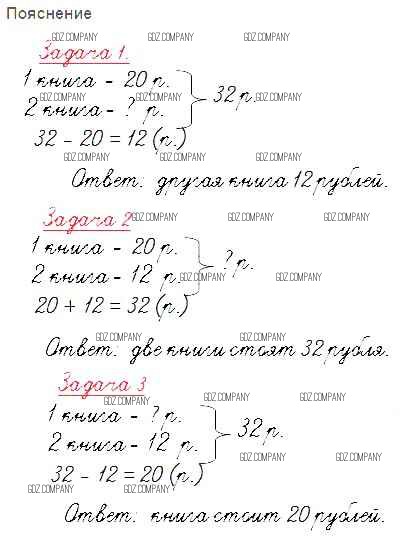 Пояснение
GDZ.COMPANY GDZ.COMPANY GDZ.COMPANY
Задача 1.
1 книга - 20 р.
GDZ.COMPANY GDZ.COMPANY GDZ.COMPANY
2 книга - ? р.
32 р.
32 - 20 = 12 (р.)
GDZ.COMPANY GDZ.COMPANY GDZ.COMPANY
Ответ: другая книга 12 рублей.
Задача 2
GDZ.COMPANY GDZ.COMPANY GDZ.COMPANY
1 книга - 20 р.
2 книга - 12 р.
? р.
GDZ.COMPANY GDZ.COMPANY GDZ.COMPANY
20 + 12 = 32 (р.)
GDZ.COMPANY GDZ.COMPANY
Ответ: две книги стоят 32 рубля.
Задача 3
GDZ.COMPANY GDZ.COMPANY GDZ.COMPANY
1 книга - ? р.
2 книга - 12 р.
32 р.
GDZ.COMPANY GDZ.COMPANY
32 - 12 = 20 (р.)
GDZ.COMPANY GDZ.COMPANY
Ответ: книга стоит 20 рублей.